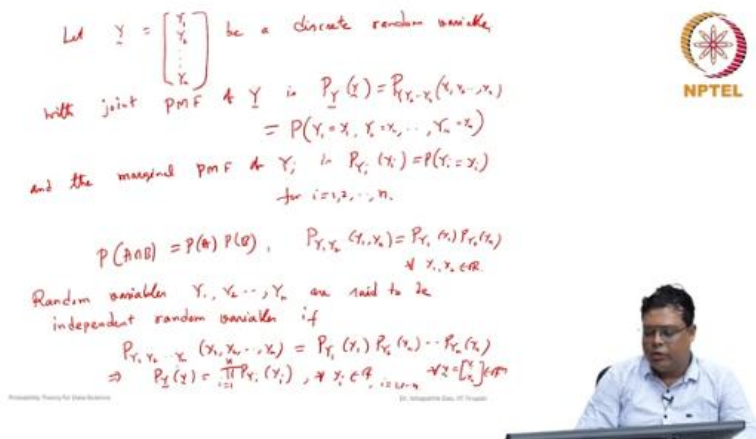 Let Y = [Y₁ Y₂ ⋮ Yₙ] be a discrete random variable
with joint PMF of Y is P_Y(y) = P_{Y₁Y₂…Yₙ}(y₁, y₂, …, yₙ)
= P(Y₁ = y₁, Y₂ = y₂, …, Yₙ = yₙ)
and the marginal PMF of Yᵢ is P_{Yᵢ}(yᵢ) = P(Yᵢ = yᵢ)
for i = 1, 2, …, n.
P(A∩B) = P(A) P(B), P_{Y₁Y₂}(y₁, y₂) = P_{Y₁}(y₁) P_{Y₂}(y₂)
∀ y₁, y₂ ∈ ℝ.
Random variables Y₁, Y₂ …, Yₙ are said to be
independent random variables if
P_{Y₁Y₂…Yₙ}(y₁, y₂, …, yₙ) = P_{Y₁}(y₁) P_{Y₂}(y₂) … P_{Yₙ}(yₙ)
⇒ P_Y(y) = ∏ᵢ₌₁ⁿ P_{Yᵢ}(yᵢ), ∀ yᵢ ∈ ℝ, i=1,…,n
NPTEL
Probability Theory for Data Science
IIT Tirupati